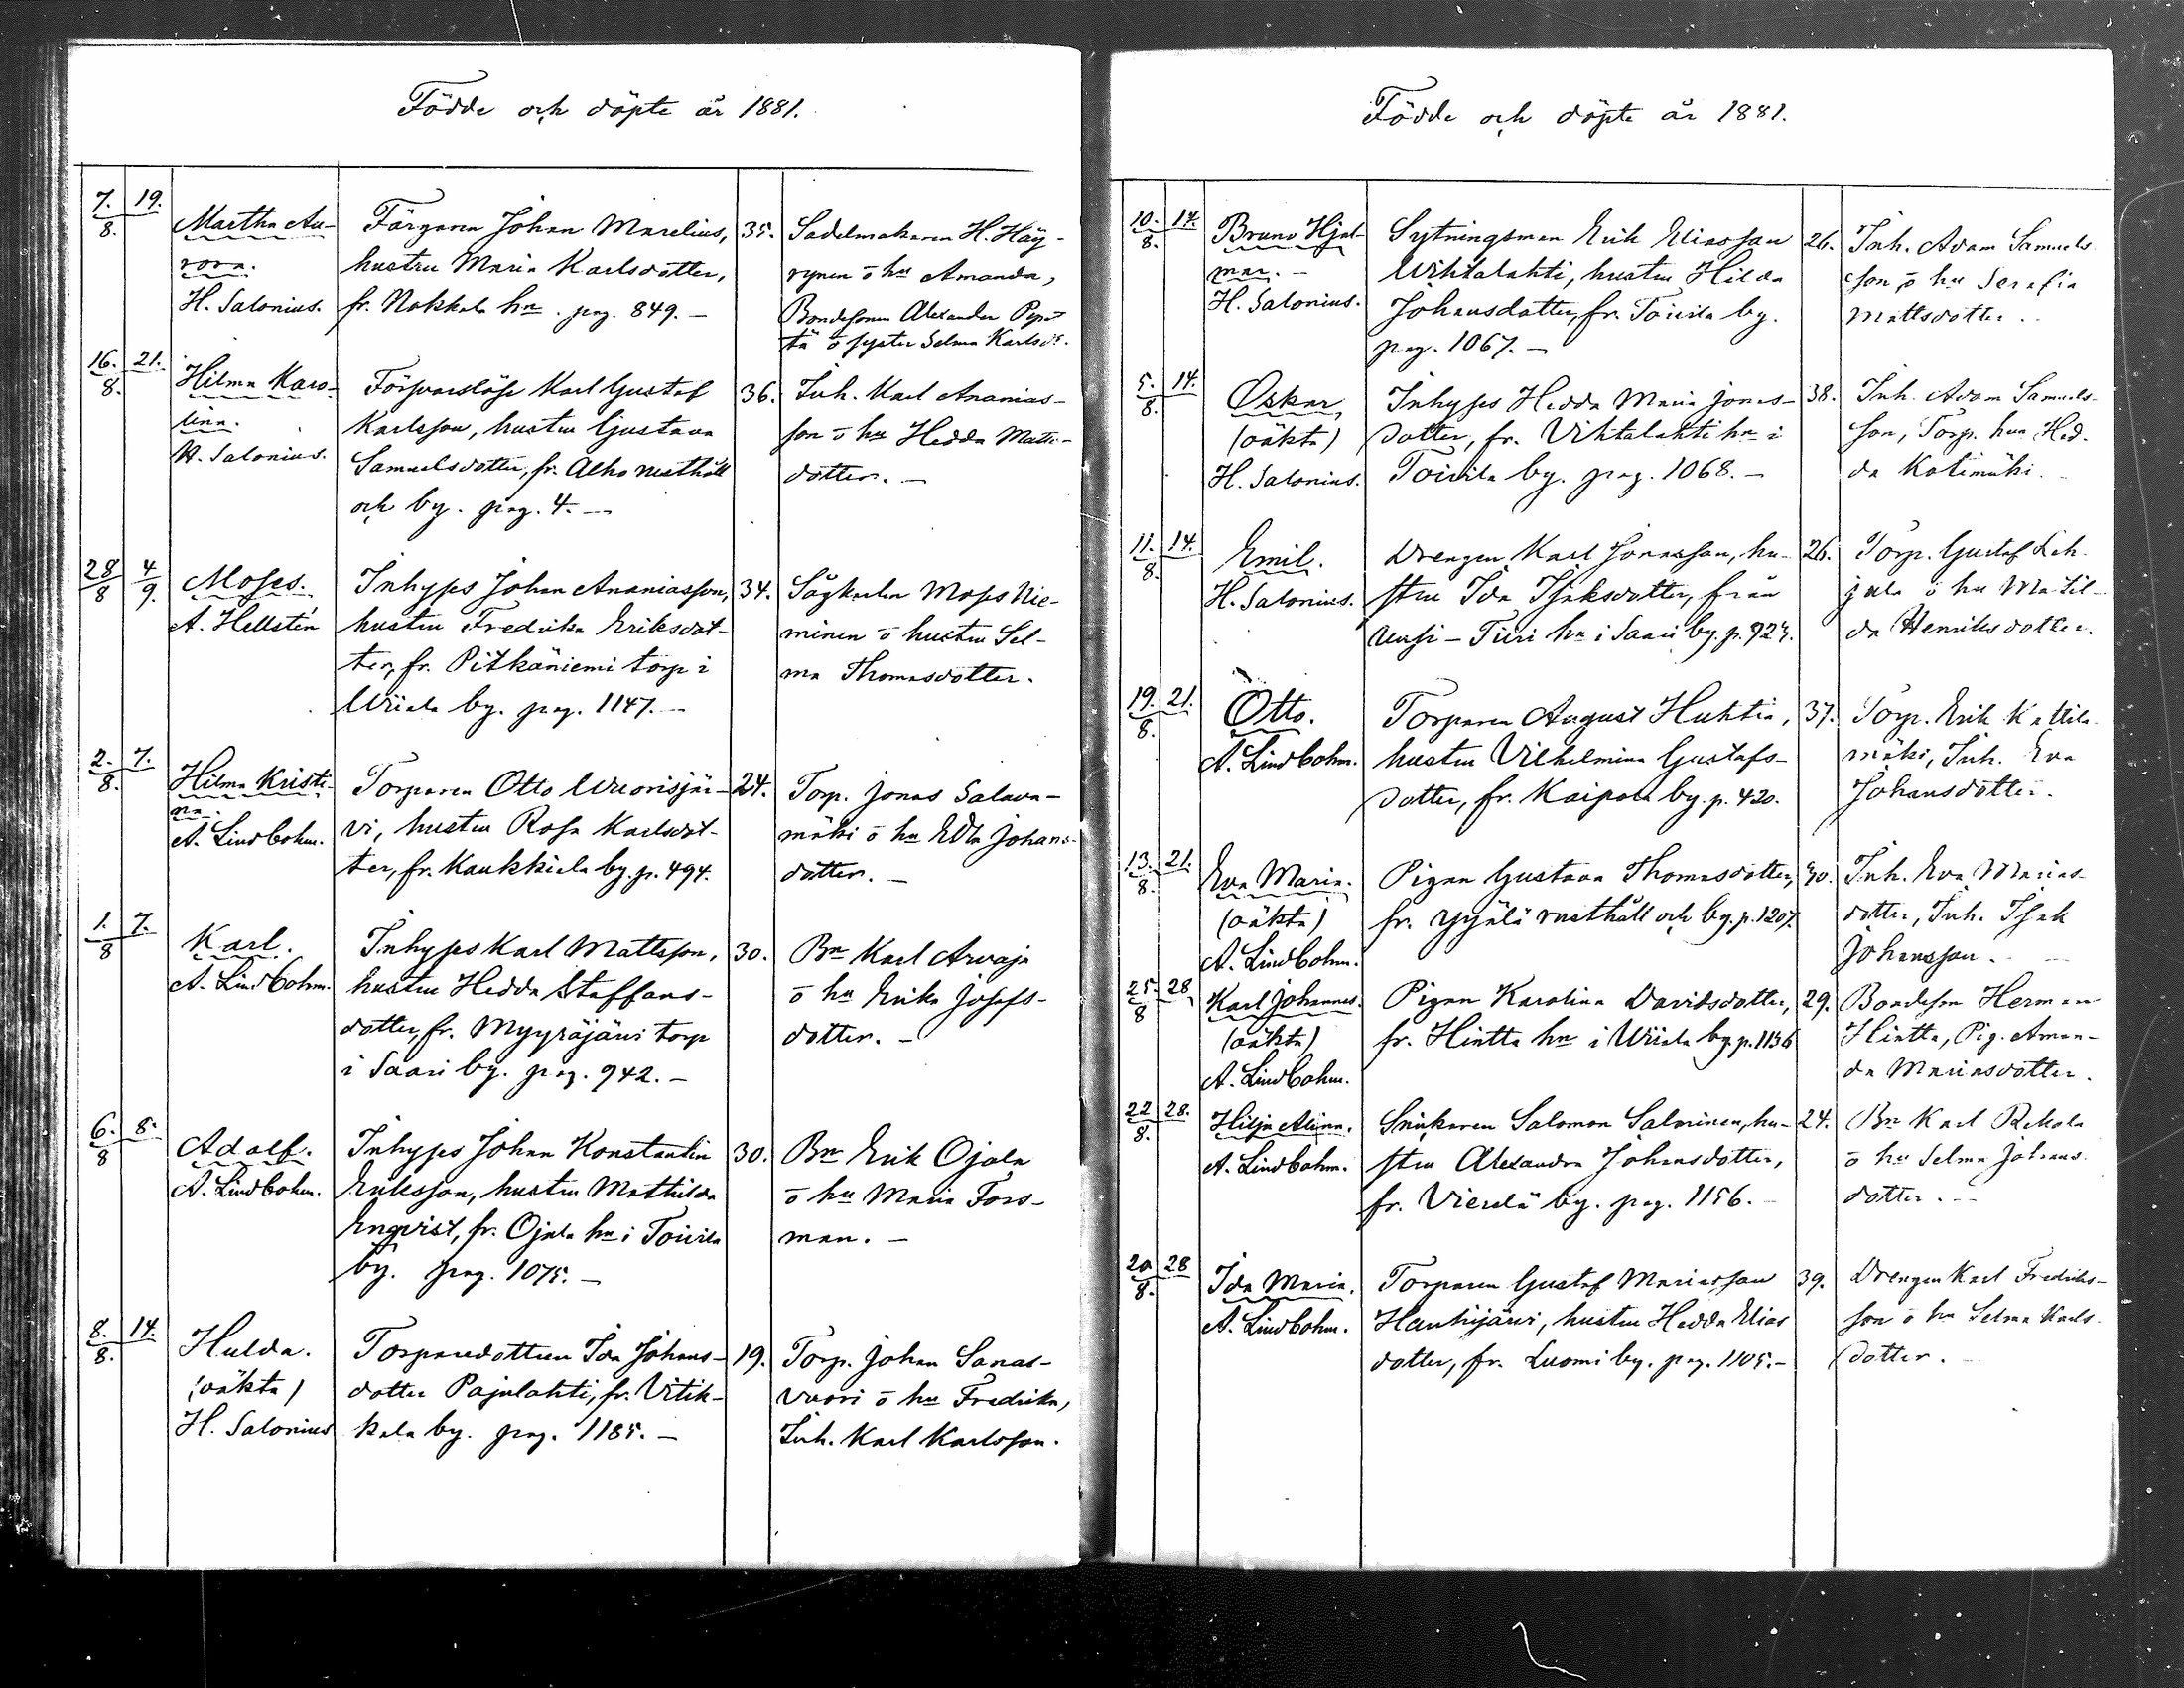 Födde och döpte år 1881.
7. 19.
8.
Martha Au-
rora.
H. Salonius.
Färgaren Johan Marelius,
hustru Maria Karlsdotter,
fr. Nokkala hn. pag. 849. –
35.
Sadelmakaren H. Häy-
rynen o hu Amanda,
Bondesonen Alexander
o syster Selma Karlsdr.
16. 21.
8.
Hilma Karo-
lina.
H. Salonius.
Försvarslöse Karl Gustaf
Karlsson, hustru Gustava
Samuelsdotter, fr. Alho rusthåll
och by. pag. 4. –
36.
Inh. Karl Ananias-
son o hu Hedda Matts-
dotter. –
28 4
8 9.
Moses.
A. Hellstén
Inhyses Johan Ananiasson,
hustru Fredrika Eriksdot-
ter, fr. Pitkäniemi torp i
Wiiala by. pag. 1147. –
34.
Sågkarlen Moses Nie-
minen o hustru Sel-
ma Thomasdotter.
2. 7.
8.
Hilma Kristi-
na.
A. Lindbohm.
Torparen Otto Wuorisjär-
vi, hustru Rosa Karlsdot-
ter, fr. Kaukkiala by. p. 494.
24.
Torp. Jonas Salava-
mäki o hu Edla Johans-
dotter. –
1. 7.
8
Karl.
A. Lindbohm.
Inhyses Karl Mattsson,
hustru Hedda Staffans-
dotter, fr. Myyräjärvi torp
i Saari by. pag. 942. –
30.
Bn Karl Arvaja
o hu Erika Josefs-
dotter. –
6. 8.
8
Adolf.
A. Lindbohm.
Inhyses Johan Konstantin
Eriksson, hustru Mathilda
Enqvist, fr. Ojala hn i Toivila
by. pag. 1075. –
30.
Bn Erik Ojala
o hu Maria Fors-
man. –
8. 14.
8.
Hulda.
(oäkta)
H. Salonius
Torparedottren Ida Johans-
dotter Pajulahti, fr. Vitik-
kala by. pag. 1185. –
19.
Torp. Johan Sanas-
vuori o hu Fredrika,
Inh. Karl Karlsson.
Födde och döpte år 1881.
10. 14.
8.
Bruno Hjal-
mar. –
H. Salonius.
Sytningsman Erik Eliasson
Wihtalahti, hustru Hilda
Johansdotter, fr. Toivila by.
pag. 1067. –
26.
Inh. Adam Samuels-
son o hu Serafia
Mattsdotter.
5. 14.
8.
Oskar,
(oäkta)
H. Salonius.
Inhyses Hedda Maria Jonas-
dotter, fr. Vihtalahti hn i
Toivila by. pag. 1068. –
38.
Inh. Adam Samuels-
son, Torp. hun Hed-
da Kotimäki.
11. 14.
8.
Emil.
H. Salonius.
Drengen Karl Jonasson, hu-
stru Ida Isaksdotter, från
Uusi-Turi hn i Saari by. p. 924.
26.
Torp. Gustaf Leh-
jala o hu Matil-
da Henriksdotter.
19. 21.
8.
Otto.
A. Lindbohm.
Torparen August Huhtia,
hustru Vilhelmina Gustafs-
dotter, fr. Kaipola by. p. 420.
37.
Torp. Erik Kattila-
mäki, Inh. Eva
Johansdotter.
13. 21.
8.
Eva Maria.
(oäkta)
A. Lindbohm.
Pigan Gustava Thomasdotter,
fr. Yijälä rusthåll och by. p. 1207.
40.
Inh. Eva Marias-
dotter, Inh. Isak
Johansson.
25. 28
8
Karl Johannes.
(oäkta)
A. Lindbohm.
Pigan Karolina Davidsdotter,
fr. Hintta hn i Wiiala by. p. 1136
29.
Bondeson Herman
Hintta, Pig. Aman-
da Mariasdotter.
22 28.
8.
Hilja Alina.
A. Lindbohm.
Snickaren Salomon Salminen, hu-
stru Alexandra Johansdotter,
fr. Vierelä by. pag. 1156.
24.
Bn Karl Rekola
o hu Selma Johans-
dotter. –
20 28
8.
Ida Maria.
A. Lindbohm.
Torparen Gustaf Mariasson
Hanhijärvi, hustru Hedda Elias
dotter, fr. Luomi by. pag. 1105. –
39.
Drengen Karl Fredriks-
son o hu Selma Karls-
dotter.